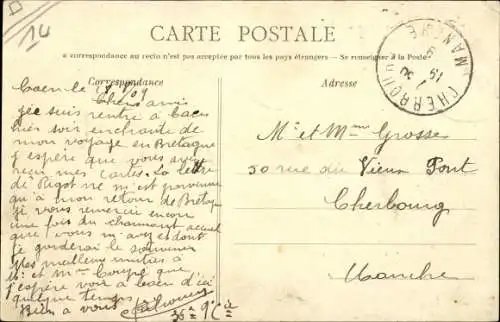 14
CARTE POSTALE
La correspondance au recto n'est pas acceptée par tous les pays étrangers. — Se renseigner à la Poste
Correspondance
Adresse
CHERBOURG
MANCHE
Caen le
Chers amis
je suis rentré à Caen
hier soir enchanté de
mon voyage en Bretagne
J'espère que vous avez
reçu mes cartes. La lettre
de Bigot ne m'est parvenue
qu'à mon retour de Bretagne
je vous remercie encore
une fois du charmant accueil
que vous m'avez et dont
je garderai le souvenir
Mes meilleurs amitiés à
Mr et Mme que
j'espère voir à Caen d'ici
quelque temps
Bien à vous
Mr et Mme Grosse
50 rue du Vieux Pont
Cherbourg
Manche